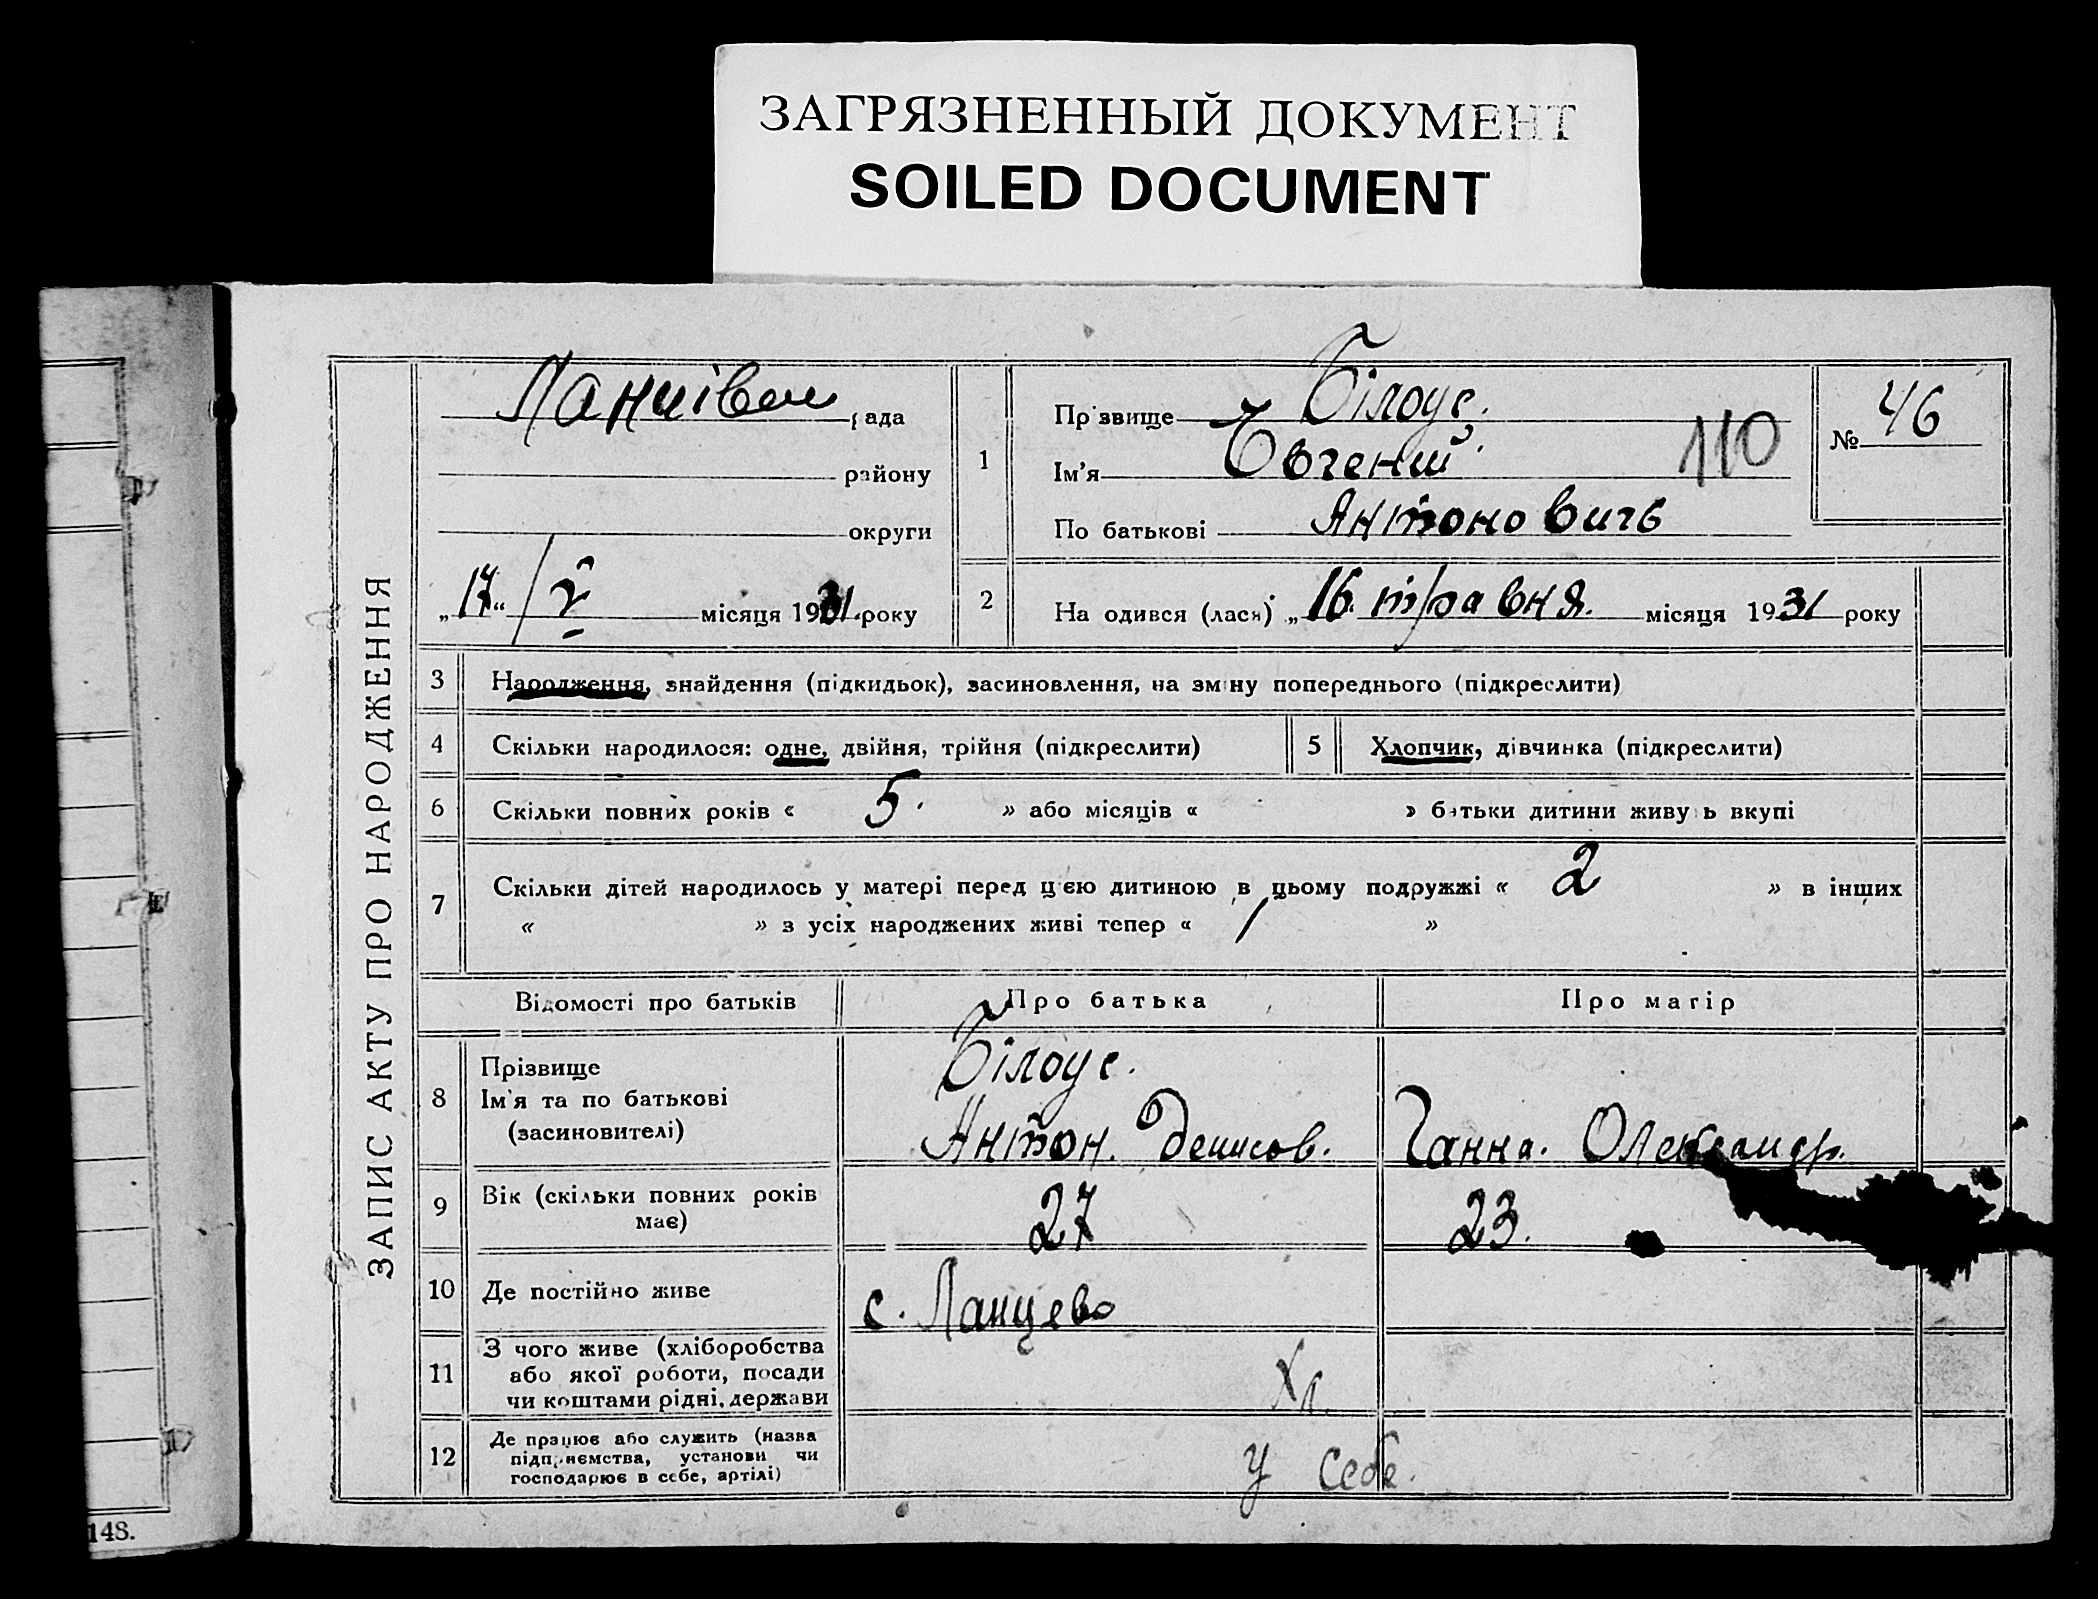 ЗАГРЯЗНЕННЫЙ ДОКУМЕНТ
SOILED DOCUMENT
ЗАПИС АКТУ ПРО НАРОДЖЕННЯ
рада
району
округи
„17“ / V місяця 1931 року
1
Прізвище Білоус.
Ім'я Євгений.
По батькові Антоновичь
110
№ 46
2
Народився (лася) „16. травня. місяця 1931 року
3 Народження, знайдення (підкидьок), засиновлення, на зміну попереднього (підкреслити)
4 Скільки народилося: одне, двійня, трійня (підкреслити)
5 Хлопчик, дівчинка (підкреслити)
6 Скільки повних років « 5. » або місяців « » батьки дитини живуть вкупі
7 Скільки дітей народилось у матері перед цією дитиною в цьому подружжі « 2 » в інших
« » з усіх народжених живі тепер « 1 »
Відомості про батьків Про батька Про матір
8 Прізвище
Ім'я та по батькові
(засиновителі)
Білоус.
Антон. Денисов. Ганна. Олександр.
9 Вік (скільки повних років
має)
27 23.
10 Де постійно живе с. Ланцево
11 З чого живе (хліборобства
або якої роботи, посади
чи коштами рідні, держави
Хл.
12 Де працює або служить (назва
підприємства, установи чи
господарює в себе, артілі)
у себе.
148.